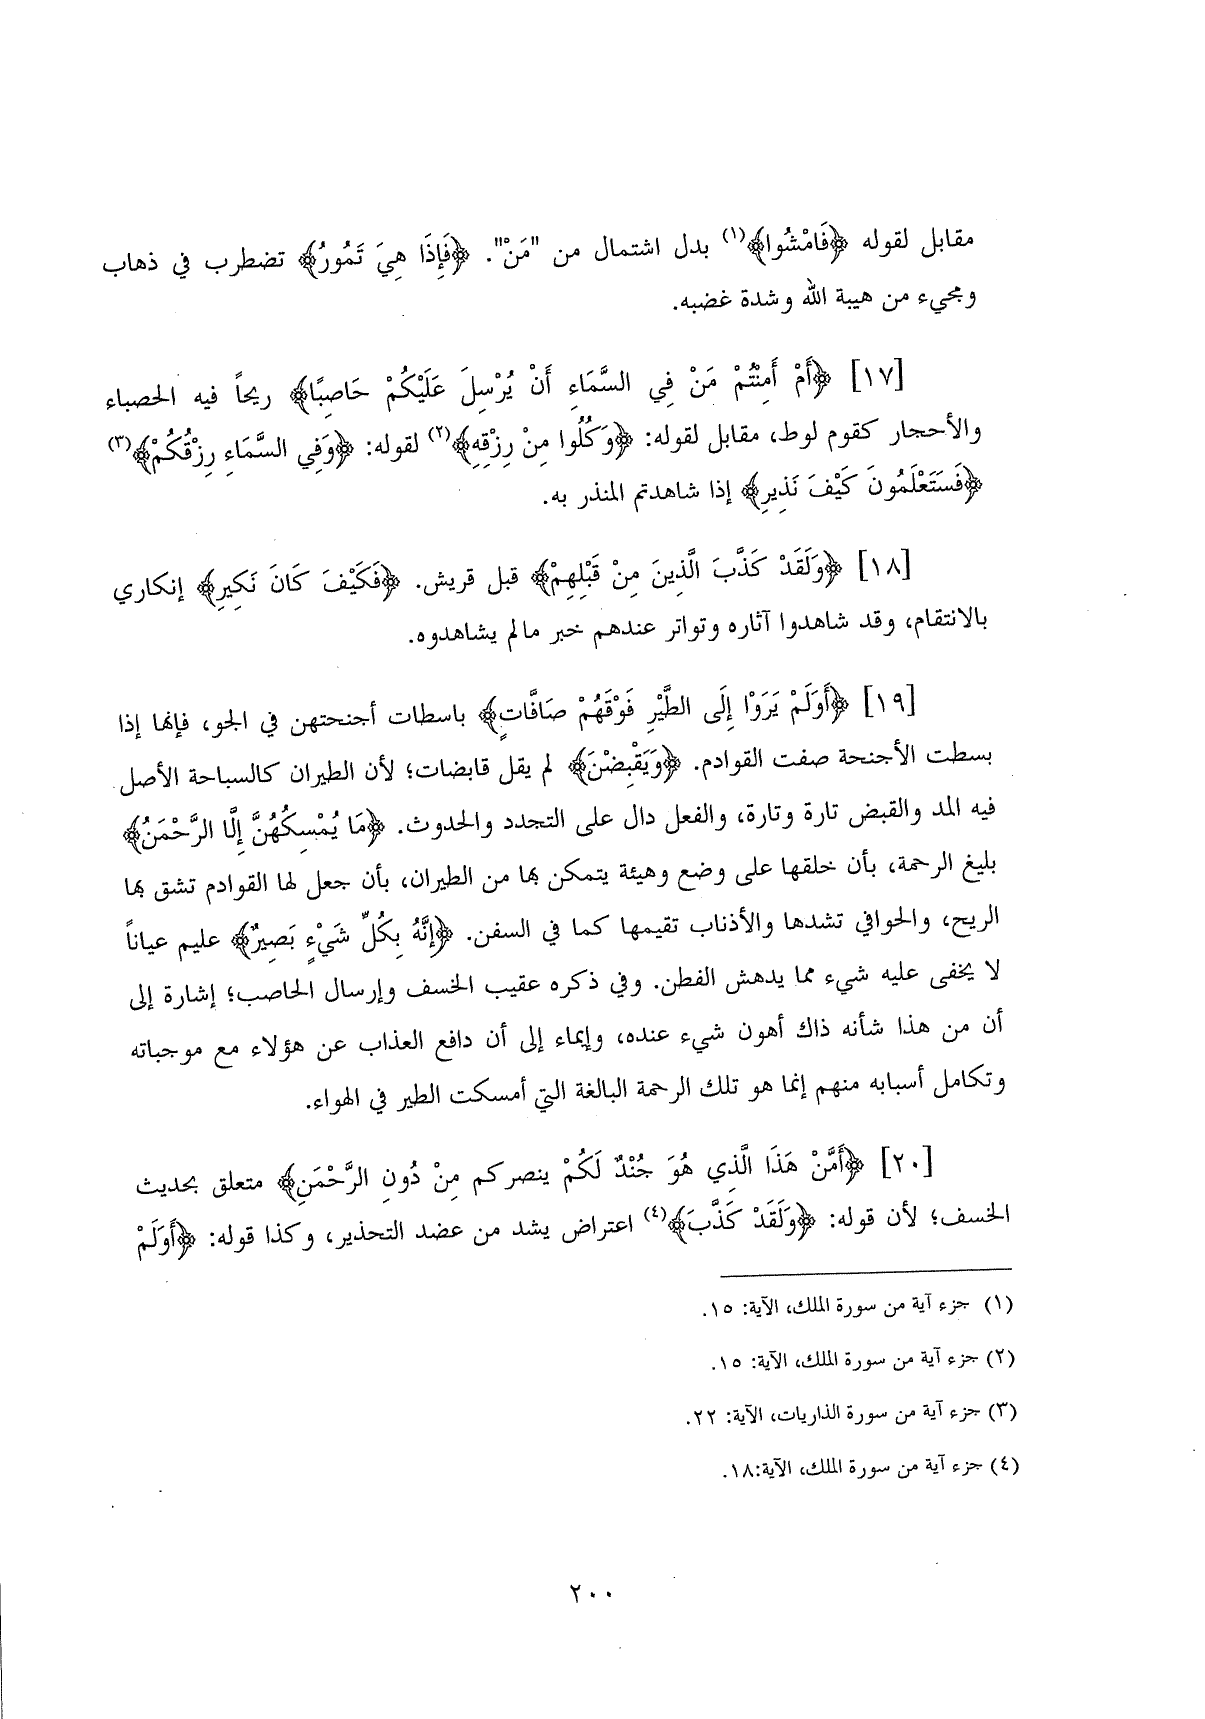 مقابل لقوله ﴿فَامْشُوا﴾(١) بدل اشتمال من "مَنْ". ﴿فَإِذَا هِيَ تَمُورُ﴾ تضطرب في ذهاب
ومجيء من هيبة الله وشدة غضبه.
[١٧] ﴿أَمْ أَمِنْتُمْ مَنْ فِي السَّمَاءِ أَنْ يُرْسِلَ عَلَيْكُمْ حَاصِبًا﴾ ريحاً فيه الحصباء
والأحجار كقوم لوط، مقابل لقوله: ﴿وَكُلُوا مِنْ رِزْقِهِ﴾(٢) لقوله: ﴿وَفِي السَّمَاءِ رِزْقُكُمْ﴾(٣)
﴿فَسَتَعْلَمُونَ كَيْفَ نَذِيرِ﴾ إذا شاهدتم المنذر به.
[١٨] ﴿وَلَقَدْ كَذَّبَ الَّذِينَ مِنْ قَبْلِهِمْ﴾ قبل قريش. ﴿فَكَيْفَ كَانَ نَكِيرِ﴾ إنكاري
بالانتقام، وقد شاهدوا آثاره وتواتر عندهم خبر مالم يشاهدوه.
[١٩] ﴿أَوَلَمْ يَرَوْا إِلَى الطَّيْرِ فَوْقَهُمْ صَافَّاتٍ﴾ باسطات أجنحتهن في الجو، فإنها إذا
بسطت الأجنحة صفت القوادم. ﴿وَيَقْبِضْنَ﴾ لم يقل قابضات؛ لأن الطيران كالسباحة الأصل
فيه المد والقبض تارة وتارة، والفعل دال على التجدد والحدوث. ﴿مَا يُمْسِكُهُنَّ إِلَّا الرَّحْمَنُ﴾
بليغ الرحمة، بأن خلقها على وضع وهيئة يتمكن بها من الطيران، بأن جعل لها القوادم تشق بها
الريح، والخوافي تشدها والأذناب تقيمها كما في السفن. ﴿إِنَّهُ بِكُلِّ شَيْءٍ بَصِيرٌ﴾ عليم عياناً
لا يخفى عليه شيء مما يدهش الفطن. وفي ذكره عقيب الخسف وإرسال الحاصب؛ إشارة إلى
أن من هذا شأنه ذاك أهون شيء عنده، وإيماء إلى أن دافع العذاب عن هؤلاء مع موجباته
وتكامل أسبابه منهم إنما هو تلك الرحمة البالغة التي أمسكت الطير في الهواء.
[٢٠] ﴿أَمَّنْ هَذَا الَّذِي هُوَ جُنْدٌ لَكُمْ ينصركم مِنْ دُونِ الرَّحْمَنِ﴾ متعلق بحديث
الخسف؛ لأن قوله: ﴿وَلَقَدْ كَذَّبَ﴾(٤) اعتراض يشد من عضد التحذير، وكذا قوله: ﴿أَوَلَمْ
(١) جزء آية من سورة الملك، الآية: ١٥.
(٢) جزء آية من سورة الملك، الآية: ١٥.
(٣) جزء آية من سورة الذاريات، الآية: ٢٢.
(٤) جزء آية من سورة الملك، الآية:١٨.
٢٠٠